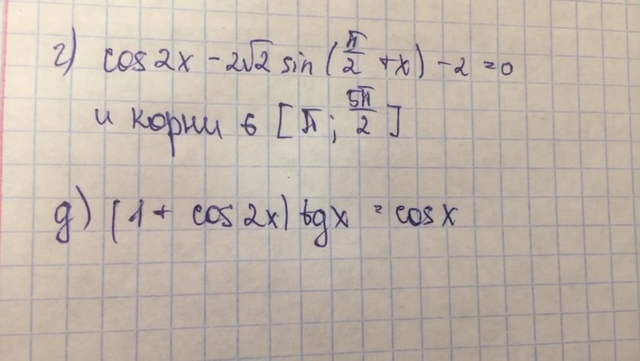 г) cos 2x - 2√2 sin (π/2 + x) - 2 = 0
и корни в [π; 5π/2]
д) (1 + cos 2x) tg x = cos x